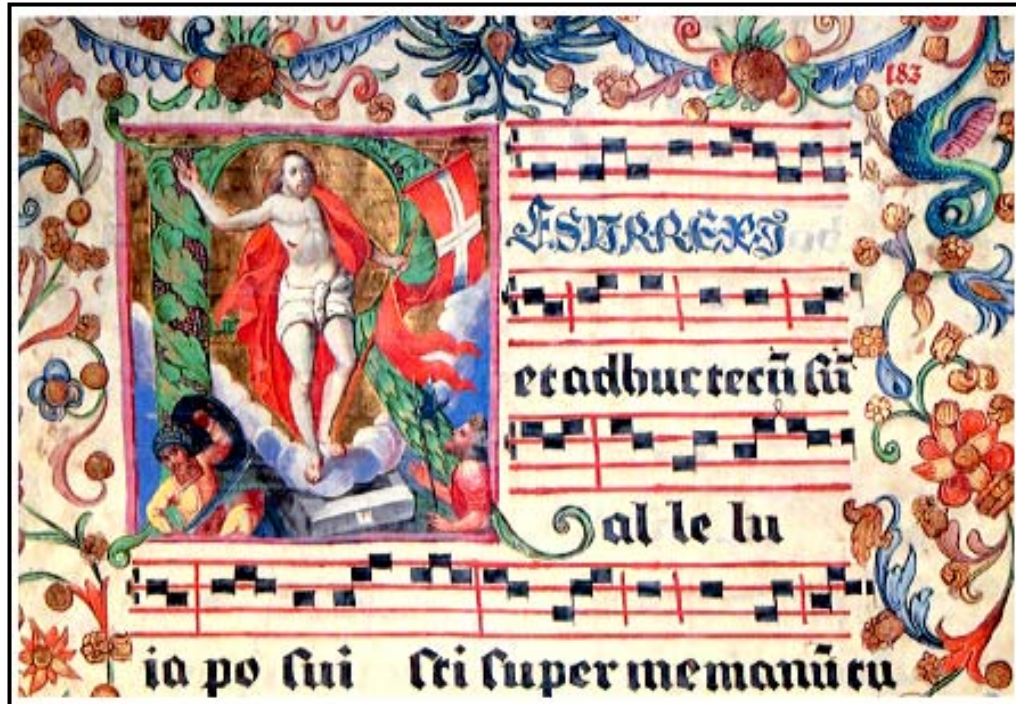 183
RESURREXI
et adhuc tecū sū
al le lu
ia po sui sti super me manū tu